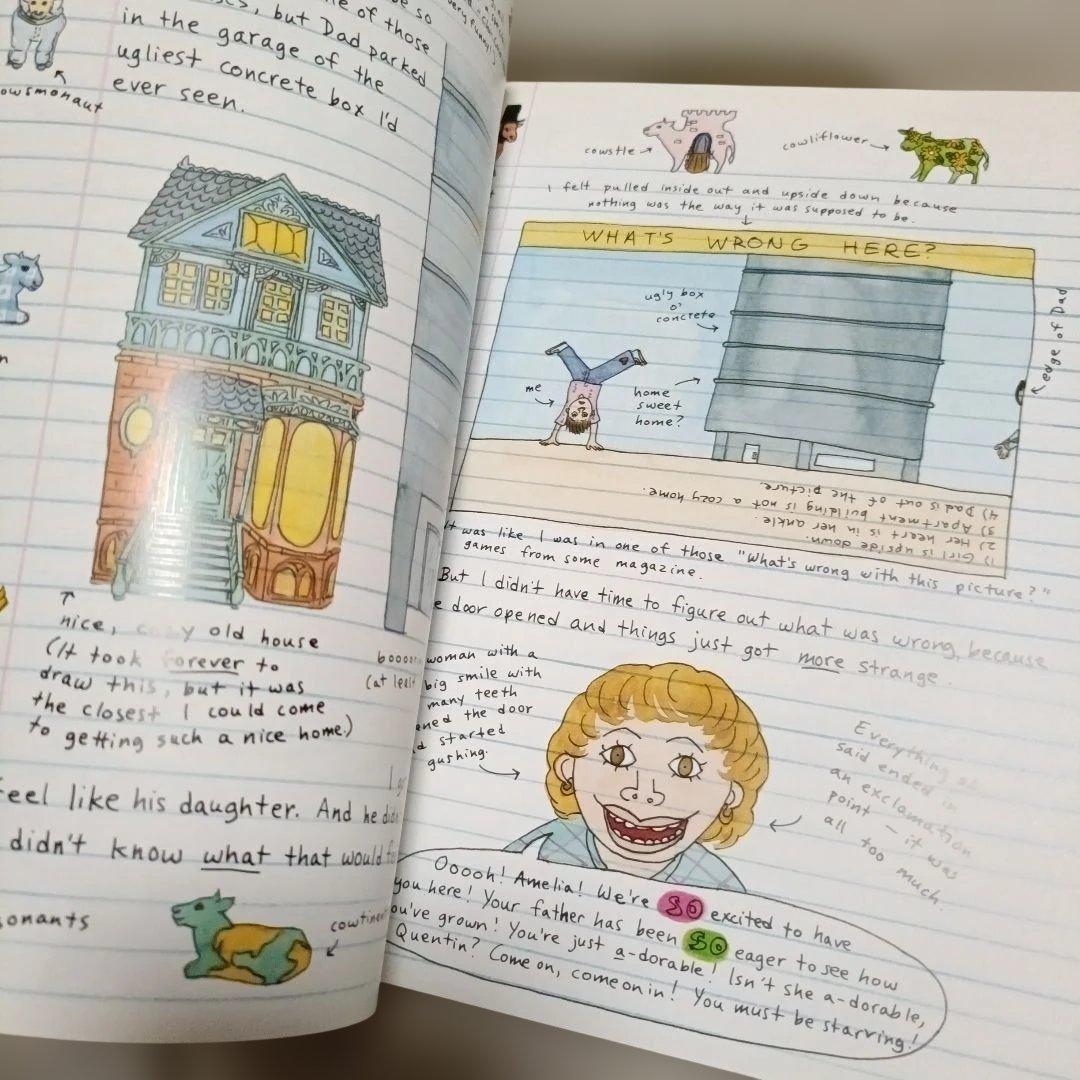 so
of those
, but Dad parked
in the garage of the
ugliest concrete box I'd
ever seen.
owsmonaut
nice, cozy old house
(It took forever to
draw this, but it was
the closest I could come
to getting such a nice home.)
(at least
feel like his daughter. And he
didn't know what that would
onants
cowtinent
cowstle
cowliflower
I felt pulled inside out and upside down because
nothing was the way it was supposed to be.
WHAT'S WRONG HERE?
ugly box
o'
concrete
me
home
sweet
home?
edge of Dad
1) Girl is upside down.
2) Her heart is in her ankle.
3) Apartment building is not a cozy home.
4) Dad is out of the picture.
It was like I was in one of those "What's wrong with this picture?"
games from some magazine.
But I didn't have time to figure out what was wrong, because
e door opened and things just got more strange.
woman with a
big smile with
many teeth
ened the door
d started
gushing.
Everything she
said ended in
an exclamation
point - it was
all too
much.
Ooooh! Amelia! We're SO excited to have
you here! Your father has been SO eager to see how
ou've grown! You're just a-dorable! Isn't she a-dorable,
Quentin? Come on, come on in! You must be starving!